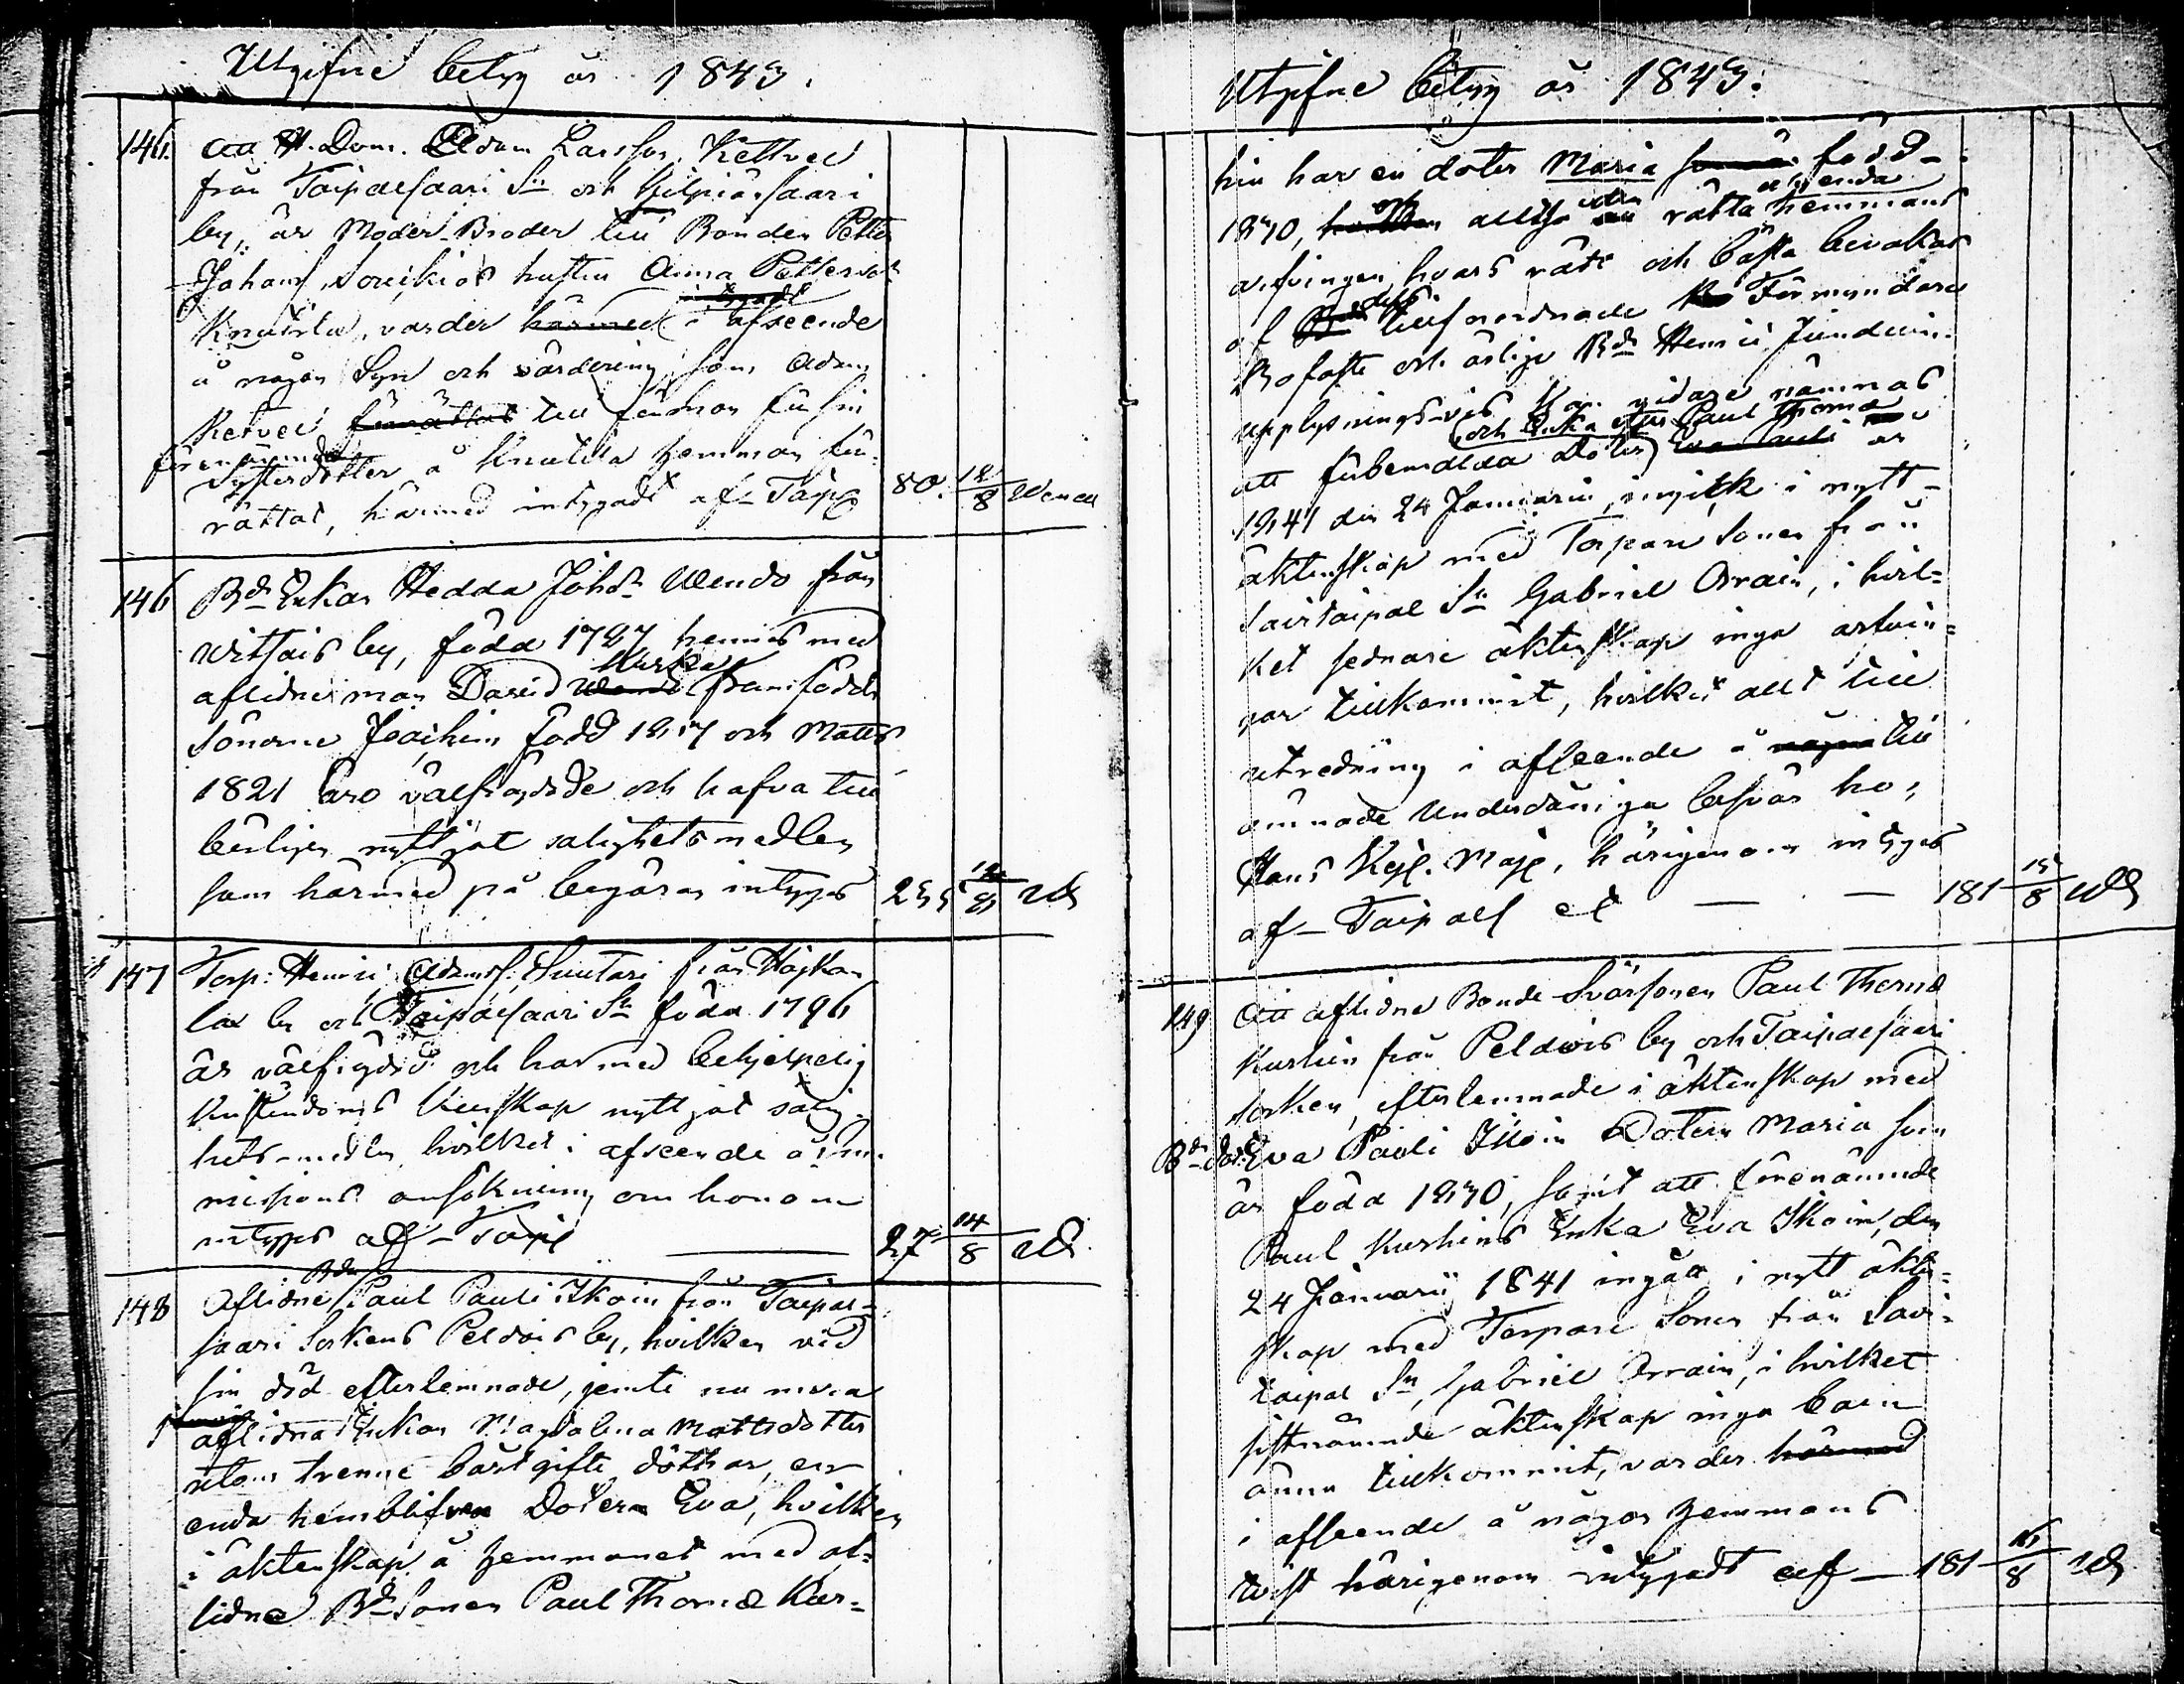 Utgifne betyg år 1843.
146. att H. Dom. Adam Larsson Kettvei
från Taipalsaari Sn och Kilpiänsaari
by, är Moder-Broder till Bonden Petter
Johans. hustru Anna Pettersdr
Knuutila, varder härmed i afseende
intygadt
å någon Syn och värdering, som Adam
Ketvei förrättat till förmon för sin
förenämnde
Systerdotter å Knutila hemman för-
rättat, härmed intygadt af Taip 80. 12/8
146 Bde Enkan Hedda Johsdr Wendo från
Witsais by, född 1787 hennes med
aflidne man David framfödde
Sönerne Joachim född 1817 och Matts
1821 äro välfrägdade och hafva till
börligen nyttjat salighetsmedlen
som härmed på begäran intygas 255 12/8 Ws
147 Torp: Henric Adamss: Suutari från Hajkan
lax by och Taipalsaari Sn född 1796
är välfrägdad och har med behjelpelig
kristendoms kunskap nyttjat salig-
hets-medlen, hvilket i afseende å
missions ansökning om honom
intygas af Taipl — 27 14/8 Ws
148 Aflidne Bden Paul Pauli Ikoin från Taipal-
saari Sockens Peldois by, hvilken vid
sin död efterlemnade, jemte nu mera
aflidna Enkan Magdalena Mattsdotter
utom trenne bortgifte döttrar, en
enda hemblifven Dotern Eva, hvilken
i äktenskap å hemmanet med af-
lidne Bde Sonen Paul Thomæ Kur-
Utgifne betyg år 1843.
hin har en doter Maria som är född
1830, hvilken och alltså rätta hemmans
enda
arfvingen, hvars rätt och bästa bevakas
af dess tillförordnade Förmyndare
Bofaste och ärlige Bde Henric
upplysningsvis kan vidare nämnas
och Enka efter Paul Thomæ
att förbemälda Doter Eva Pauli är
1841 den 24 Januarii, ingick i nytt
äktenskap med Torpare Sonen från
Savitaipal Sn Gabriel Orrain, i hvil-
ket sednare äktenskap inga arfvin-
gar tillkommit, hvilket allt till
utredning i afseende å några till
ämnade Underdåniga besvär hos
Hans Kejs. Maj, härigenom intygas
af Taipals et — — 181 15/8 Ws
149 Att aflidne Bonde Svärsonen Paul Thomæ
Kurhin från Peldois by och Taipalsaari
socken, efterlemnade i äktenskap med
Bde dot: Eva Pauli Ikoin Dotern Maria som
är född 1830, samt att förenämnde
Paul Kurhins Enka Eva Ikoin, den
24 Januarii 1841 ingått i nytt äkten-
skap med Torpare Sonen från Savi-
taipal Sn, Gabriel Orrain, i hvilket
sistnämnde äktenskap inga barn
ännu tillkommit, varder härmed
i afseende å någon hemmans
tvist härigenom intygadt af — 181 16/8 Ws